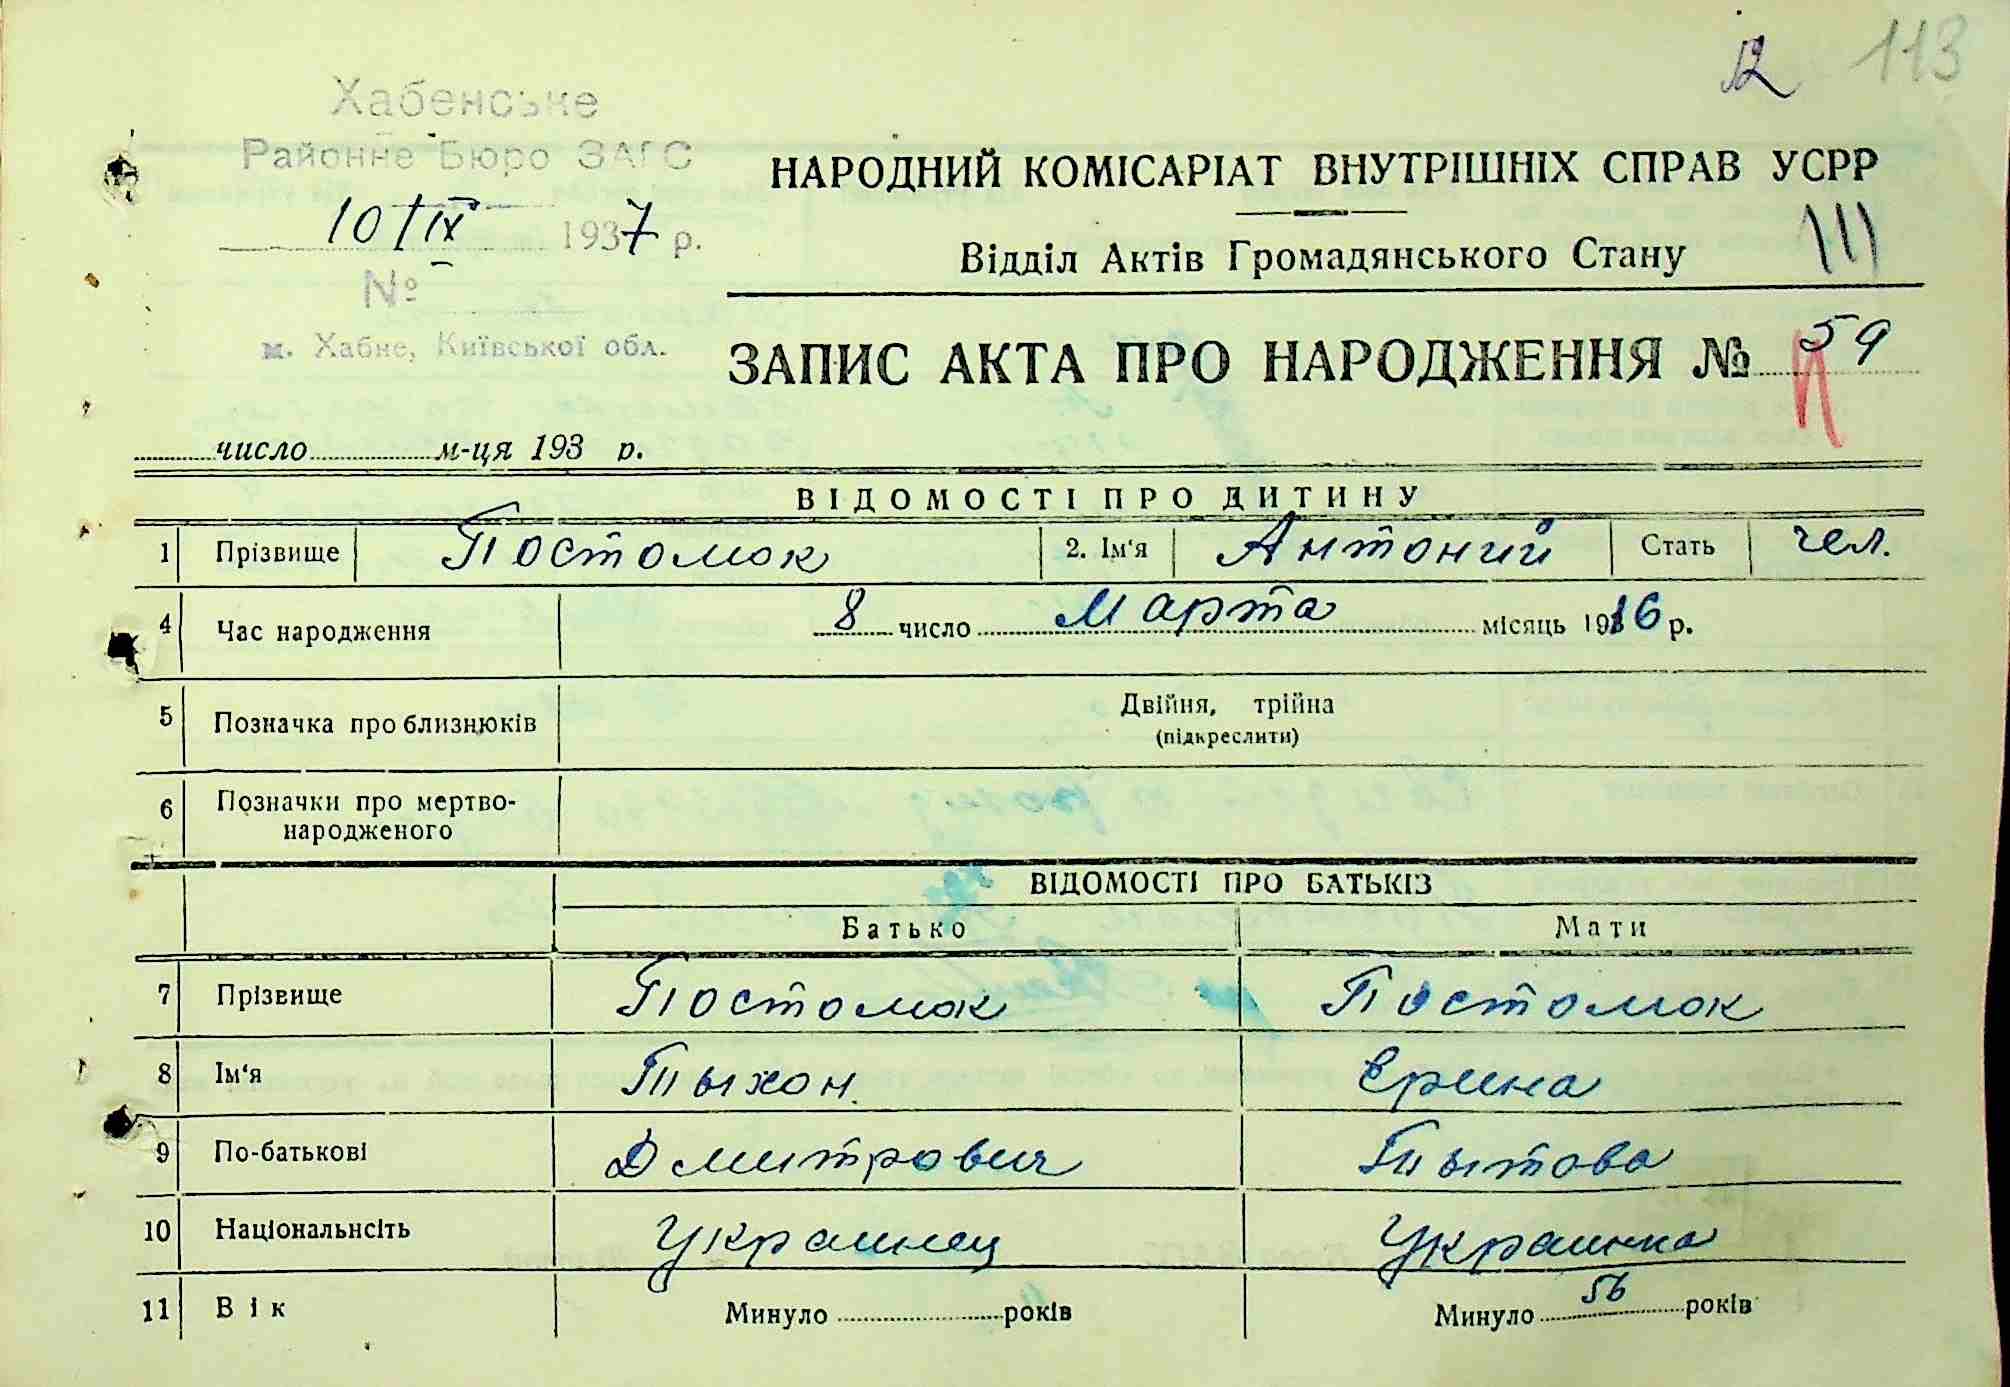 12 113
Хабенське
Районне Бюро ЗАГС
10/IX 1937 р.
№
м. Хабне, Київської обл.
НАРОДНИЙ КОМІСАРІАТ ВНУТРІШНІХ СПРАВ УСРР
Відділ Актів Громадянського Стану
ЗАПИС АКТА ПРО НАРОДЖЕННЯ № 59
число м-ця 193 р.
ВІДОМОСТІ ПРО ДИТИНУ
1 Прізвище Постомок 2. Ім‘я Антоний Стать чел.
4 Час народження 8 число Марта місяць 1916 р.
5 Позначка про близнюків Двійня, трійна
(підкреслити)
6 Позначки про мертво-
народженого
ВІДОМОСТІ ПРО БАТЬКІЗ
Батько Мати
7 Прізвище Постомок Постомок
8 Ім‘я Тыхон Ерина
9 По-батькові Дмитрович Тытова
10 Національнсіть Украинец Украинка
11 Вік Минуло років Минуло 56 років